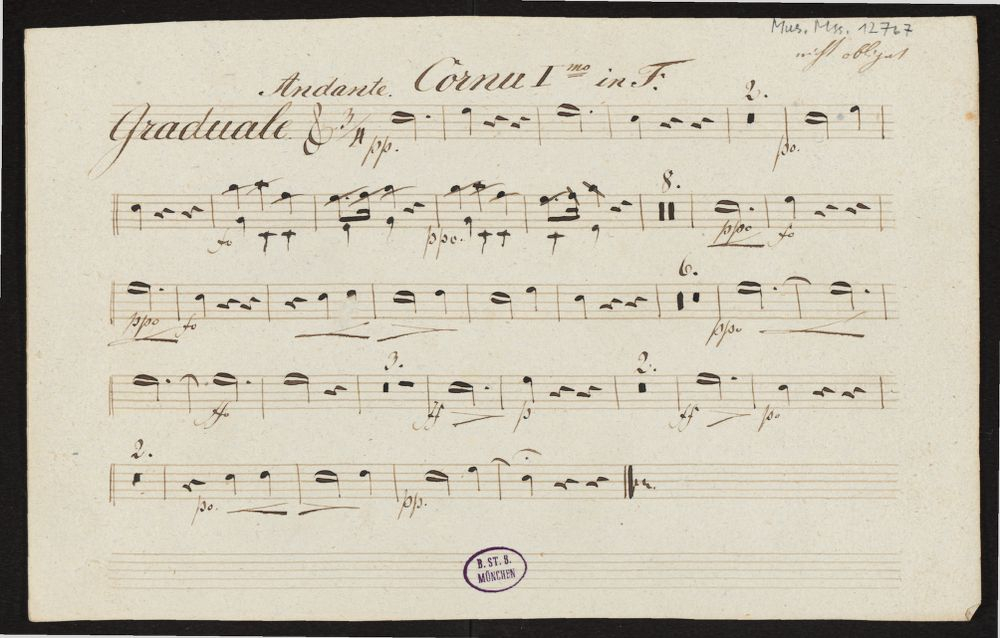 Mus. Mss. 12767
nicht obligat
Andante. Cornu I mo in F.
Graduale. 3/4
2.
pp. po.
8.
fo ppo. ppo fo
6.
ppo fo ppo
3. 2.
ffo ff p ff po
2.
po. pp.
B. ST. B.
MÜNCHEN